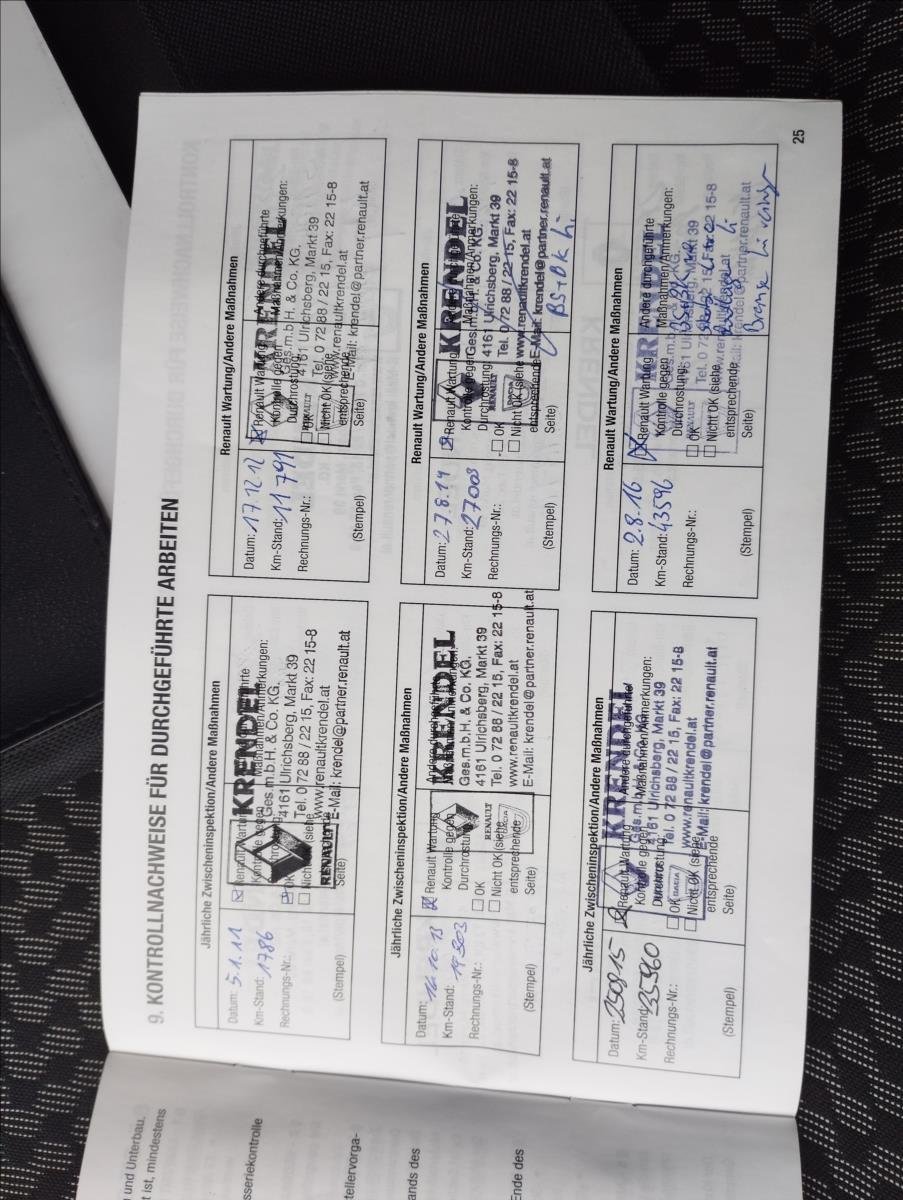 9. KONTROLLNACHWEISE FÜR DURCHGEFÜHRTE ARBEITEN
Jährliche Zwischeninspektion/Andere Maßnahmen
Datum: 5.1.11
Km-Stand: 1786
Rechnungs-Nr.:
(Stempel)
Renault Wartung
Kontrolle gegen
OK
Nicht OK (siehe
Seite)
Maßnahmen/Anmerkungen:
KRENDEL
Ges.m.b.H. & Co. KG.
4161 Ulrichsberg, Markt 39
Tel. 0 72 88 / 22 15, Fax: 22 15-8
www.renaultkrendel.at
E-Mail: krendel@partner.renault.at
RENAULT
Renault Wartung/Andere Maßnahmen
Datum: 17.12.12
Km-Stand: 11 791
Rechnungs-Nr.:
(Stempel)
Renault Wartung
Kontrolle gegen
Durchrostung:
OK
Nicht OK (siehe
entsprechende
Seite)
KRENDEL
Ges.m.b.H. & Co. KG.
4161 Ulrichsberg, Markt 39
Tel. 0 72 88 / 22 15, Fax: 22 15-8
www.renaultkrendel.at
E-Mail: krendel@partner.renault.at
Jährliche Zwischeninspektion/Andere Maßnahmen
Datum: 10.13
Km-Stand:
Rechnungs-Nr.:
(Stempel)
Renault Wartung
Kontrolle gegen
Durchrostung
OK
Nicht OK (siehe
entsprechende
Seite)
KRENDEL
Ges.m.b.H. & Co. KG.
4161 Ulrichsberg, Markt 39
Tel. 0 72 88 / 22 15, Fax: 22 15-8
www.renaultkrendel.at
E-Mail: krendel@partner.renault.at
RENAULT
Renault Wartung/Andere Maßnahmen
Datum: 27.8.14
Km-Stand: 27003
Rechnungs-Nr.:
(Stempel)
Renault Wartung
Kontrolle gegen
Durchrostung
OK
Nicht OK (siehe
entsprechende
Seite)
Maßnahmen/Anmerkungen:
KRENDEL
Ges.m.b.H. & Co. KG.
4161 Ulrichsberg, Markt 39
Tel. 0 72 88 / 22 15, Fax: 22 15-8
www.renaultkrendel.at
E-Mail: krendel@partner.renault.at
RENAULT
BS+BK hi.
Jährliche Zwischeninspektion/Andere Maßnahmen
Datum: 250915
Km-Stand: 35960
Rechnungs-Nr.:
(Stempel)
Renault Wartung
Kontrolle gegen
Durchrostung:
OK
Nicht OK (siehe
entsprechende
Seite)
Andere durchgeführte
Maßnahmen/Anmerkungen:
KRENDEL
4161 Ulrichsberg, Markt 39
Tel. 0 72 88 / 22 15, Fax: 22 15-8
www.renaultkrendel.at
E-Mail: krendel@partner.renault.at
DACIA
Renault Wartung/Andere Maßnahmen
Datum: 2.8.16
Km-Stand: 43596
Rechnungs-Nr.:
(Stempel)
Renault Wartung
Kontrolle gegen
Durchrostung:
OK
Nicht OK (siehe
entsprechende
Seite)
Andere durchgeführte
Maßnahmen/Anmerkungen:
Bremse
25
und Unterbau.
t ist, mindestens
sseriekontrolle
tellervorga-
ands des
Ende des